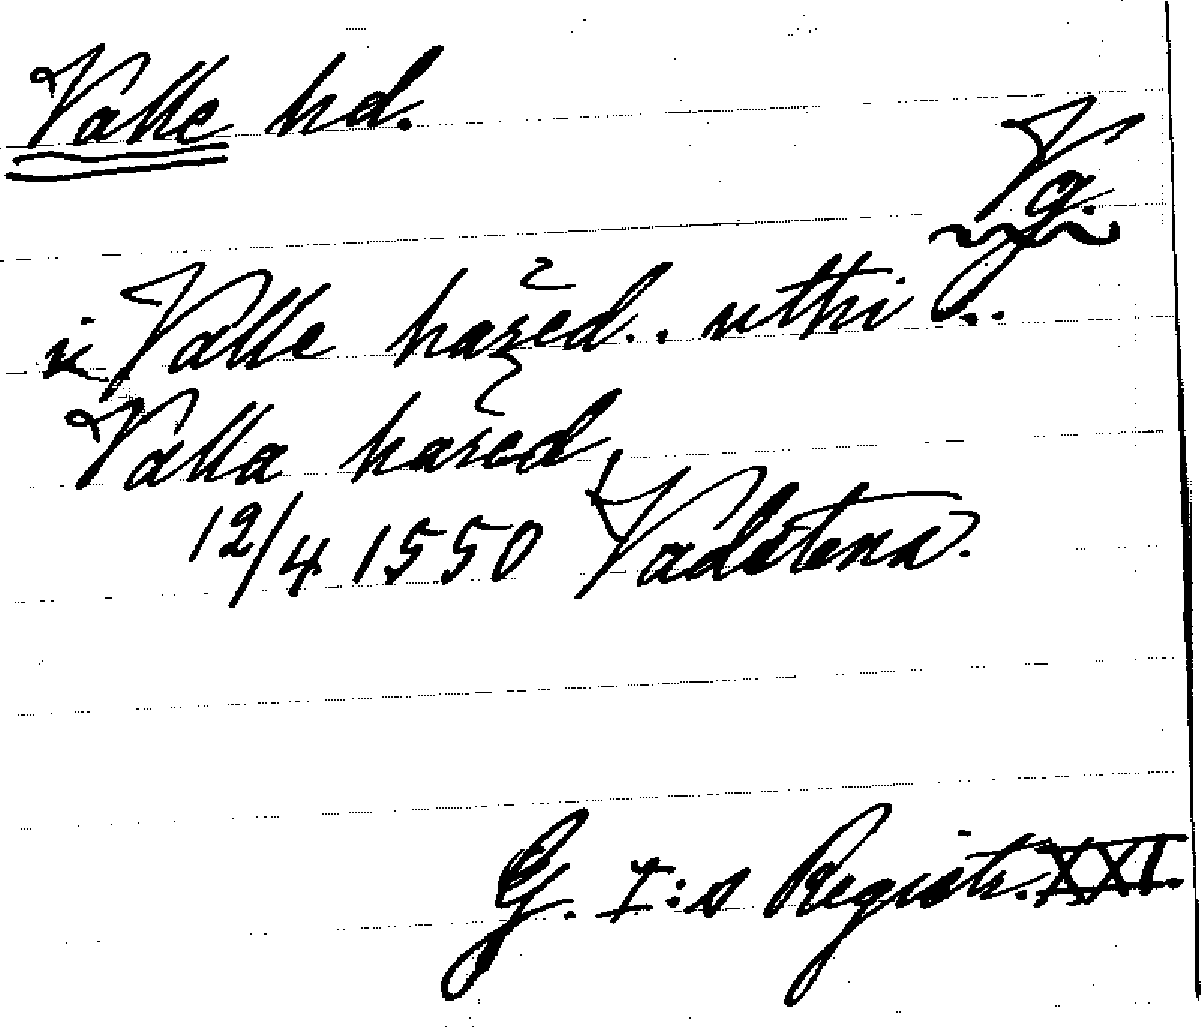 Valle hd.
Vg.
i Valle hared . . uthi . .
Valla hared
12/4 1550 Vadstena.
G. I:s Registr. XXI.